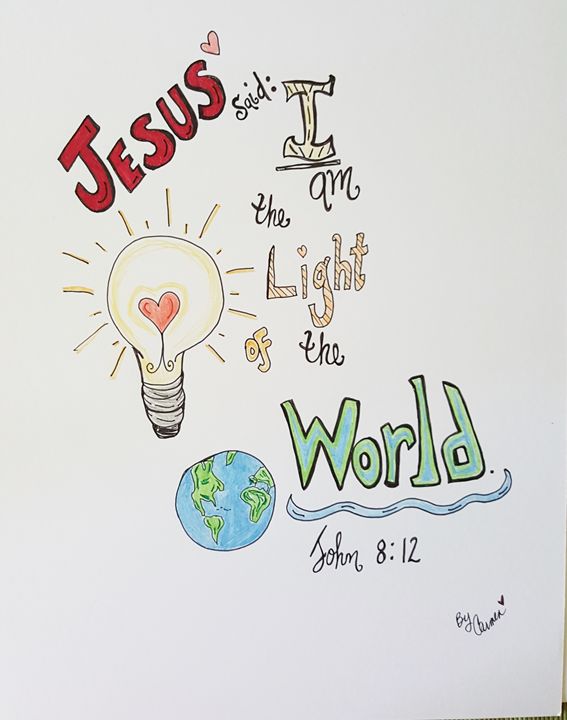 JESUS said: I
am
the
Light
of the
World.
John 8:12
By Carmen